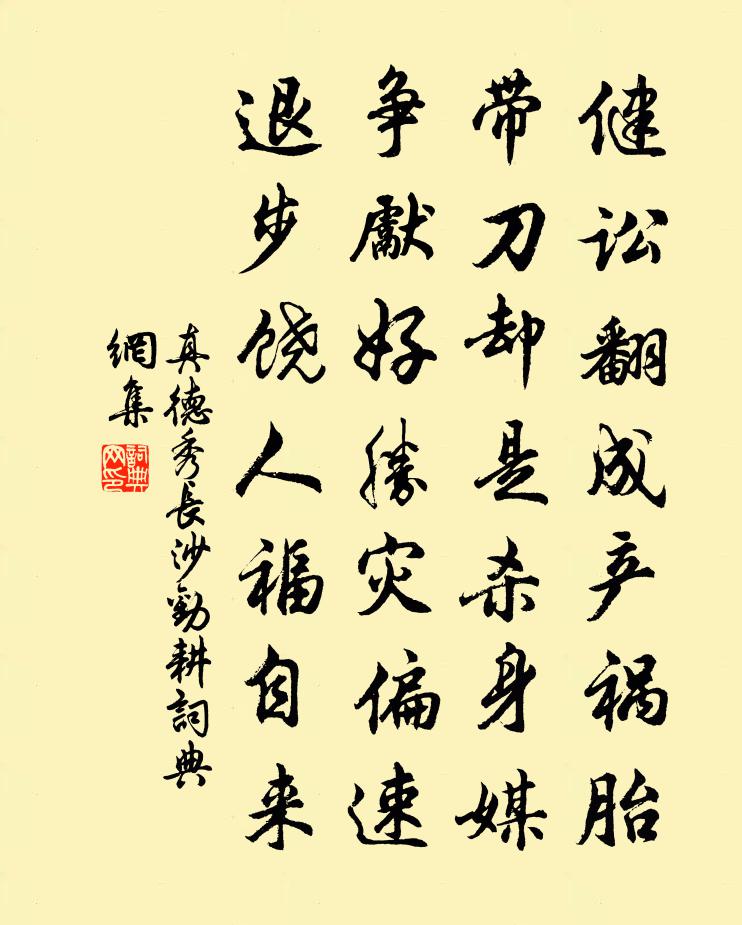 健讼翻成产祸胎
带刀却是杀身媒
争献好胜灾偏速
退步饶人福自来
真德秀長沙勸耕詞典
網集
詞典
网印